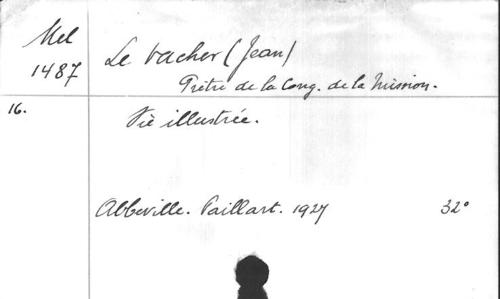 Mel
1487
Le Vacher (Jean)
Prêtre de la Cong. de la Mission.
16.
Vie illustrée.
Abbeville. Paillart. 1927
32°